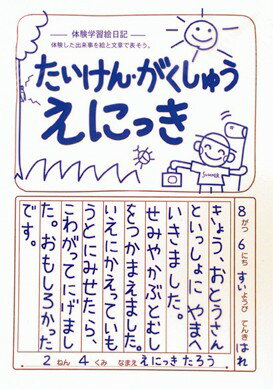 体験学習絵日記
体験した出来事を絵と文章で表そう。
たいけん・がくしゅう
えにっき
SUMMER
8がつ 6にち すいようび てんき はれ
きょう、おとうさん
といっしょに やまへ
いきました。
せみやかぶとむし
をつかまえました。
いえにかえっていも
うとにみせたら、
こわがってにげまし
た。おもしろかった
です。
2ねん 4くみ なまえ えにっき たろう